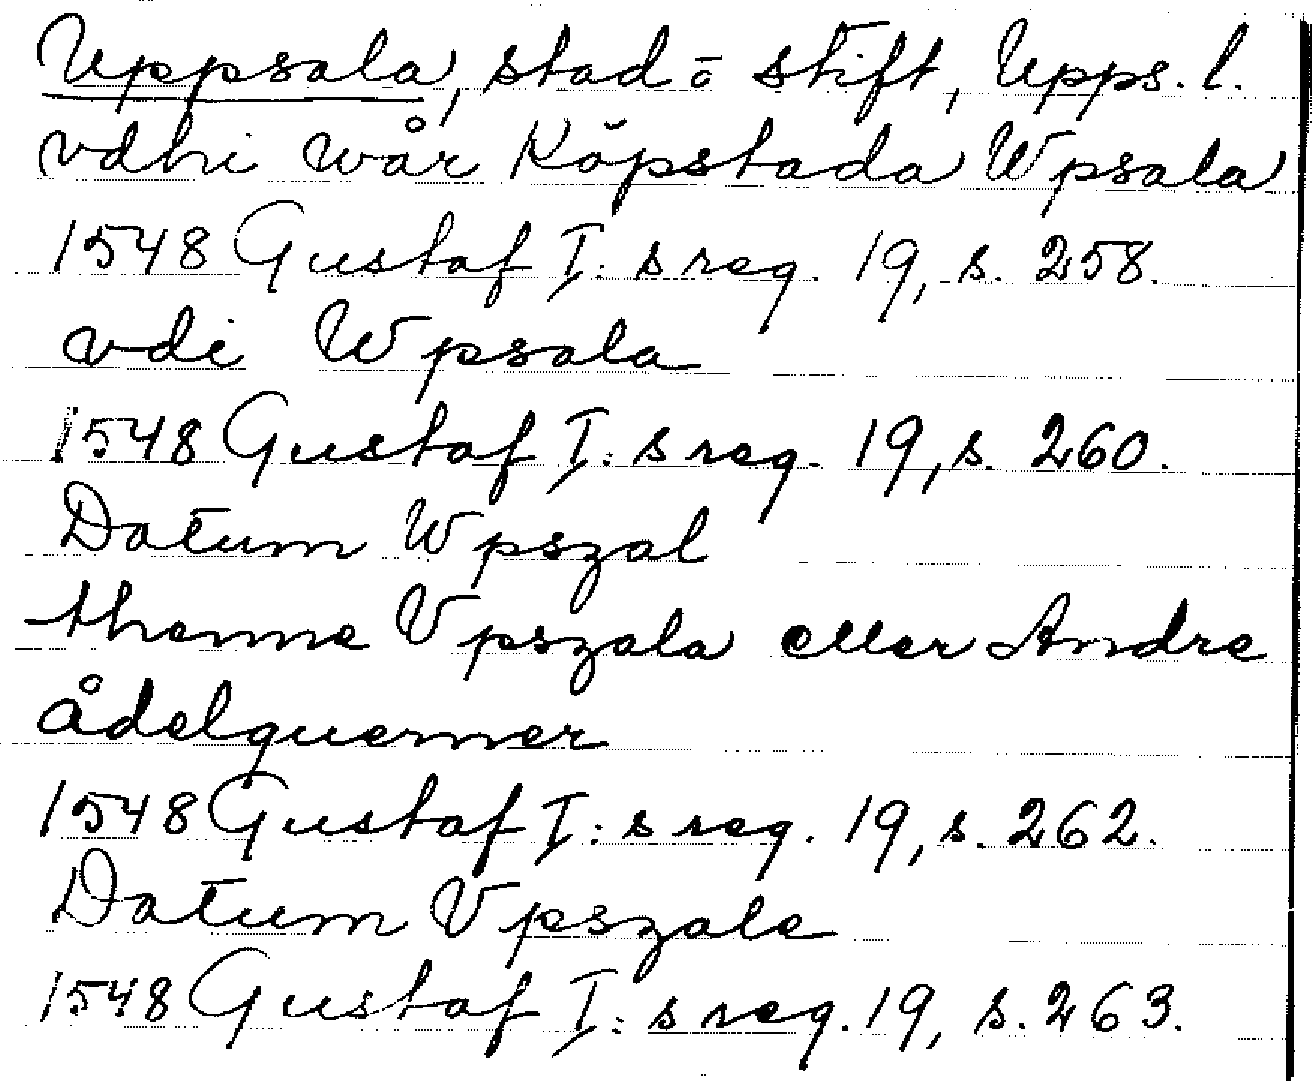 Uppsala, stad o stift, Upps. l.
vdhi wår Köpstada Wpsala
1548 Gustaf I:s reg. 19, s. 258.
vdi Wpsala
1548 Gustaf I:s reg. 19, s. 260.
Datum Wpszal
thenne Vpszala eller Andre
ådelquerner
1548 Gustaf I:s reg. 19, s. 262.
Datum Vpszale
1548 Gustaf I:s reg. 19, s. 263.